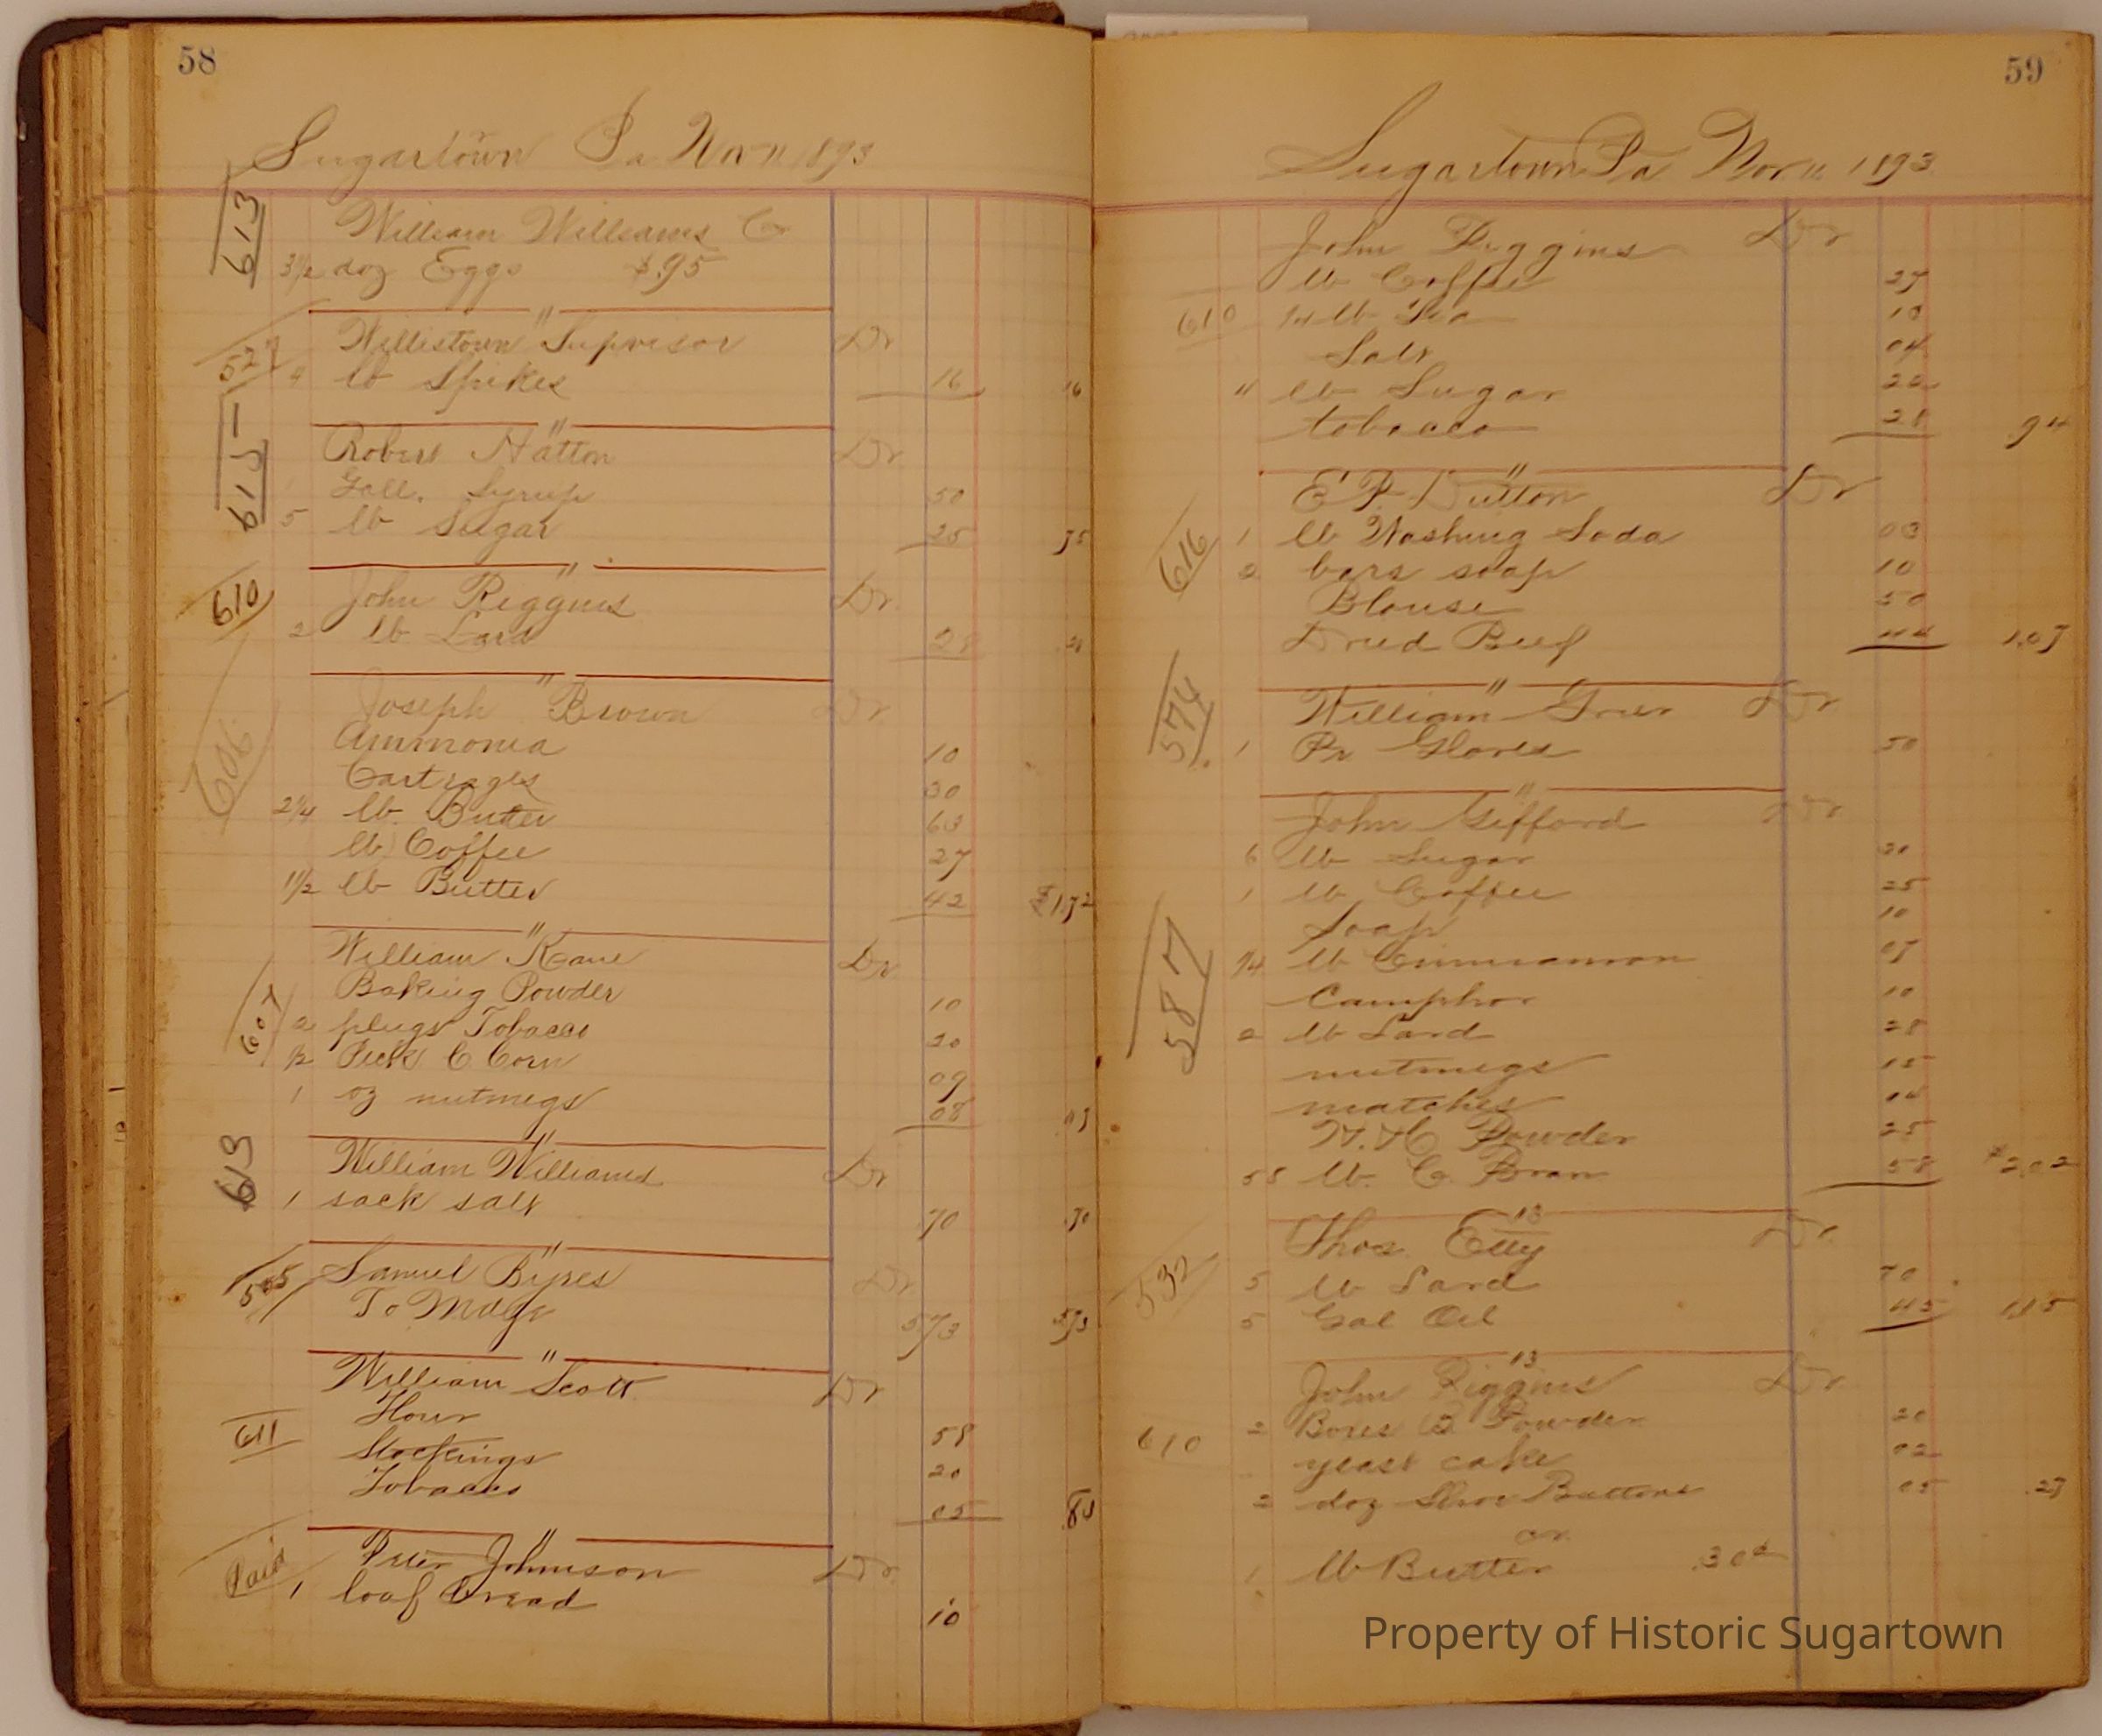 58
Sugartown Pa Nov 11 1893
613
William Williams Cr
3 1/2 doz Eggs $.95
"
Willistown Supvisor Dr
527
4 lb Spikes 16 16
"
615
Robert Hatton Dr
1 Gall. Syrup 50
5 lb Sugar 25 75
"
610
John Riggins Dr
2 lb Lard 28 .28
"
606
Joseph Brown Dr
Ammonia 10
Cartrages 30
2 1/4 lb Butter 63
lb Coffee 27
1 1/2 lb Butter 42 $1.72
"
607
William Kane Dr
Baking Powder 10
2 plugs Tobacco 20
1/2 Peck C Corn 09
1 oz nutmegs 08
"
613
William Williams Dr
1 sack salt .70 .70
"
Samuel Byres Dr
To Mdse 573 573
"
611
William Scott Dr
Flour 58
Stockings 20
Tobacco 05 .83
"
Paid
Peter Johnson Dr
1 loaf bread 10
59
Sugartown Pa Nov 11 1893
John Riggins Dr
lb Coffee 27
610 1/4 lb Tea 13
Salt 04
4 lb Sugar 22
tobacco 28 .94
"
616
E P Dutton Dr
1 lb Washing Soda 03
2 bars soap 10
Blouse 50
Dried Beef 44 1.07
"
574
William Grier Dr
1 Pr Gloves 50
"
587
John Gifford Dr
6 lb Sugar 30
1 lb Coffee 25
Soap 10
1/4 lb Cinnamon 07
Camphor 10
2 lb Lard 28
nutmegs 15
matches 04
H. H C Powder 25
55 lb C. Bran 58 $2.02
13
532
Thos. Etty Dr
5 lb Lard 70
5 Gal Oil 45 1.15
13
John Riggins Dr
610
2 Boxes B Powder 20
yeast cake 02
2 doz Shoe Buttons 05 .27
cr.
1 lb Butter .30¢
Property of Historic Sugartown